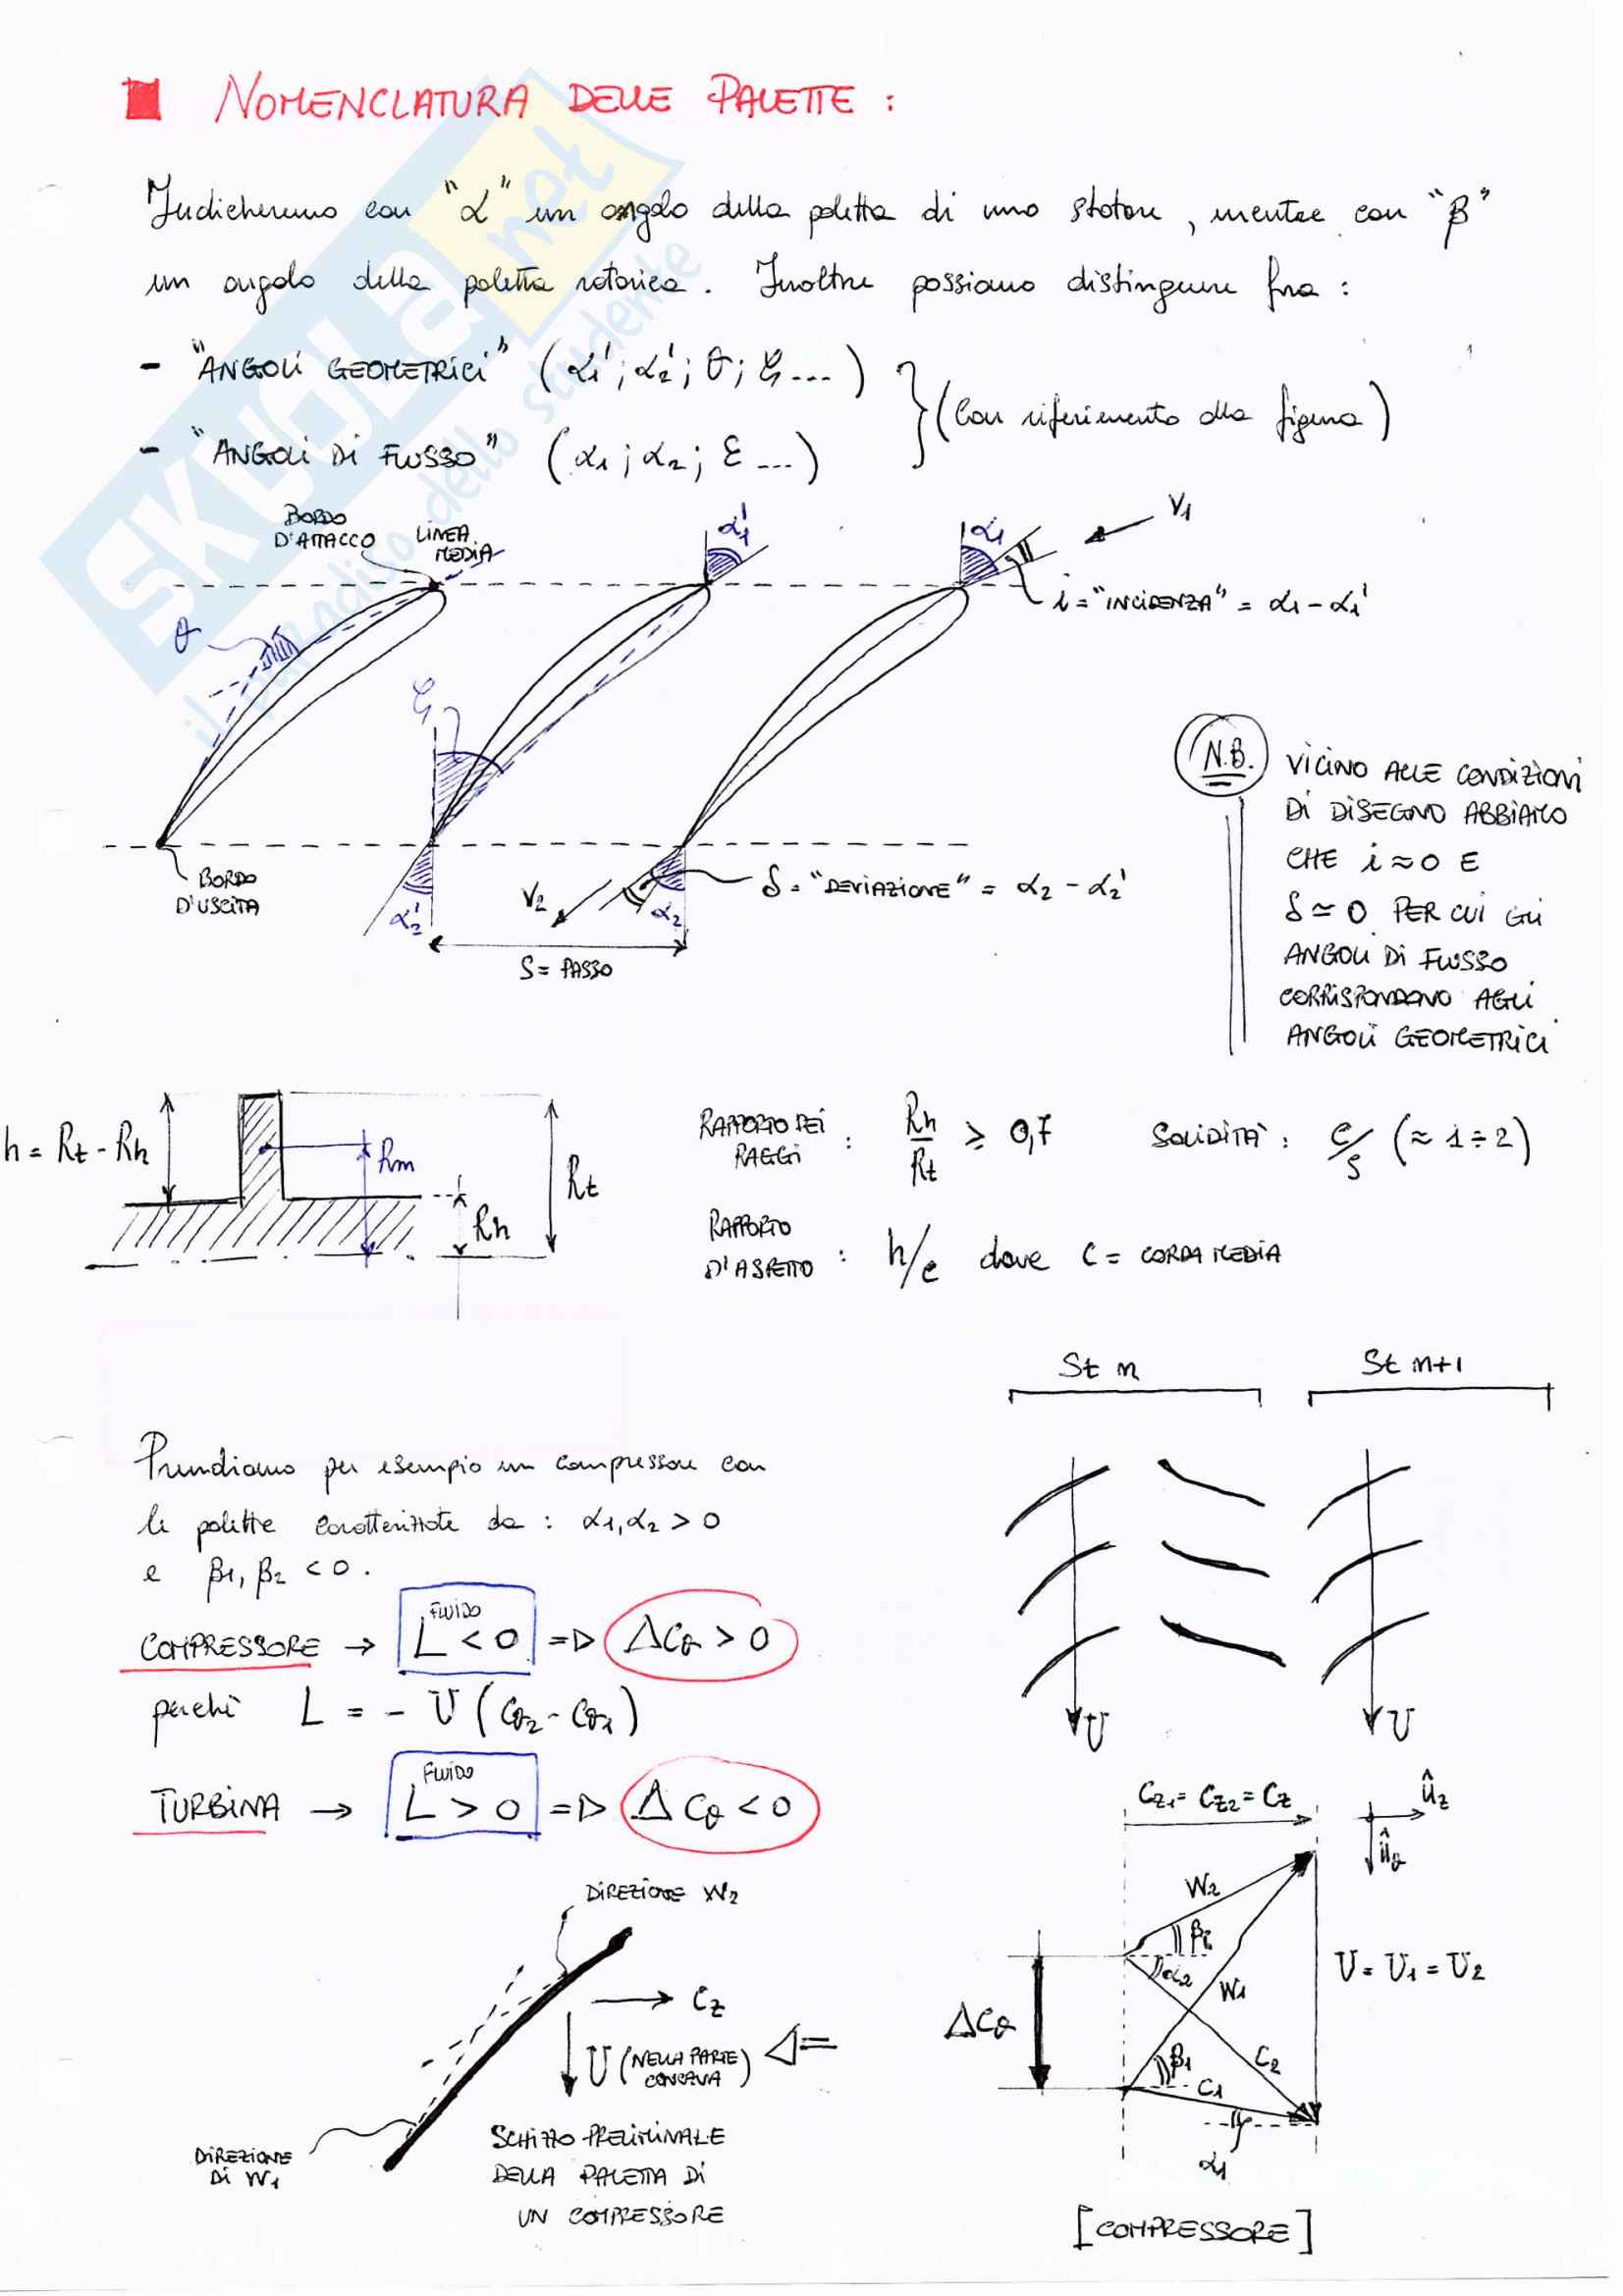 NOMENCLATURA DELLE PALETTE :
Indicheremo con "α" un angolo della paletta di uno statore, mentre con "β"
un angolo della paletta rotorica. Inoltre possiamo distinguere fra :
- "ANGOLI GEOMETRICI" (α1'; α2'; θ; ξ ...)
- "ANGOLI DI FLUSSO" (α1; α2; ε ...)
(Con riferimento alla figura)
BORDO
D'ATTACCO
LINEA
MEDIA
α1'
α1
V1
i = "INCIDENZA" = α1 - α1'
θ
ξ
BORDO
D'USCITA
α2'
V2
α2
δ = "DEVIAZIONE" = α2 - α2'
S = PASSO
N.B.
VICINO ALLE CONDIZIONI
DI DISEGNO ABBIAMO
CHE i ≈ 0 E
δ ≃ 0 PER CUI GLI
ANGOLI DI FLUSSO
CORRISPONDONO AGLI
ANGOLI GEOMETRICI
h = Rt - Rh
Rm
Rh
Rt
RAPPORTO DEI
RAGGI : Rh/Rt ⩾ 0,7
SOLIDITÀ : c/s (≈ 1 ÷ 2)
RAPPORTO
D'ASPETTO : h/c dove c = CORDA MEDIA
St n
St n+1
U
U
Prendiamo per esempio un compressore con
le palette caratterizzate da : α1, α2 > 0
e β1, β2 < 0.
COMPRESSORE → L FLUIDO < 0 => ΔCθ > 0
perché L = - U (Cθ2 - Cθ1)
TURBINA → L FLUIDO > 0 => ΔCθ < 0
Cz1 = Cz2 = Cz
ûz
ûθ
W2
β2
α2
W1
U = U1 = U2
ΔCθ
β1
C2
C1
α1
[COMPRESSORE]
DIREZIONE W2
Cz
U (NELLA PARTE
CONCAVA)
DIREZIONE
DI W1
SCHIZZO PRELIMINALE
DELLA PALETTA DI
UN COMPRESSORE
SKUOLA.net
il paradiso dello studente